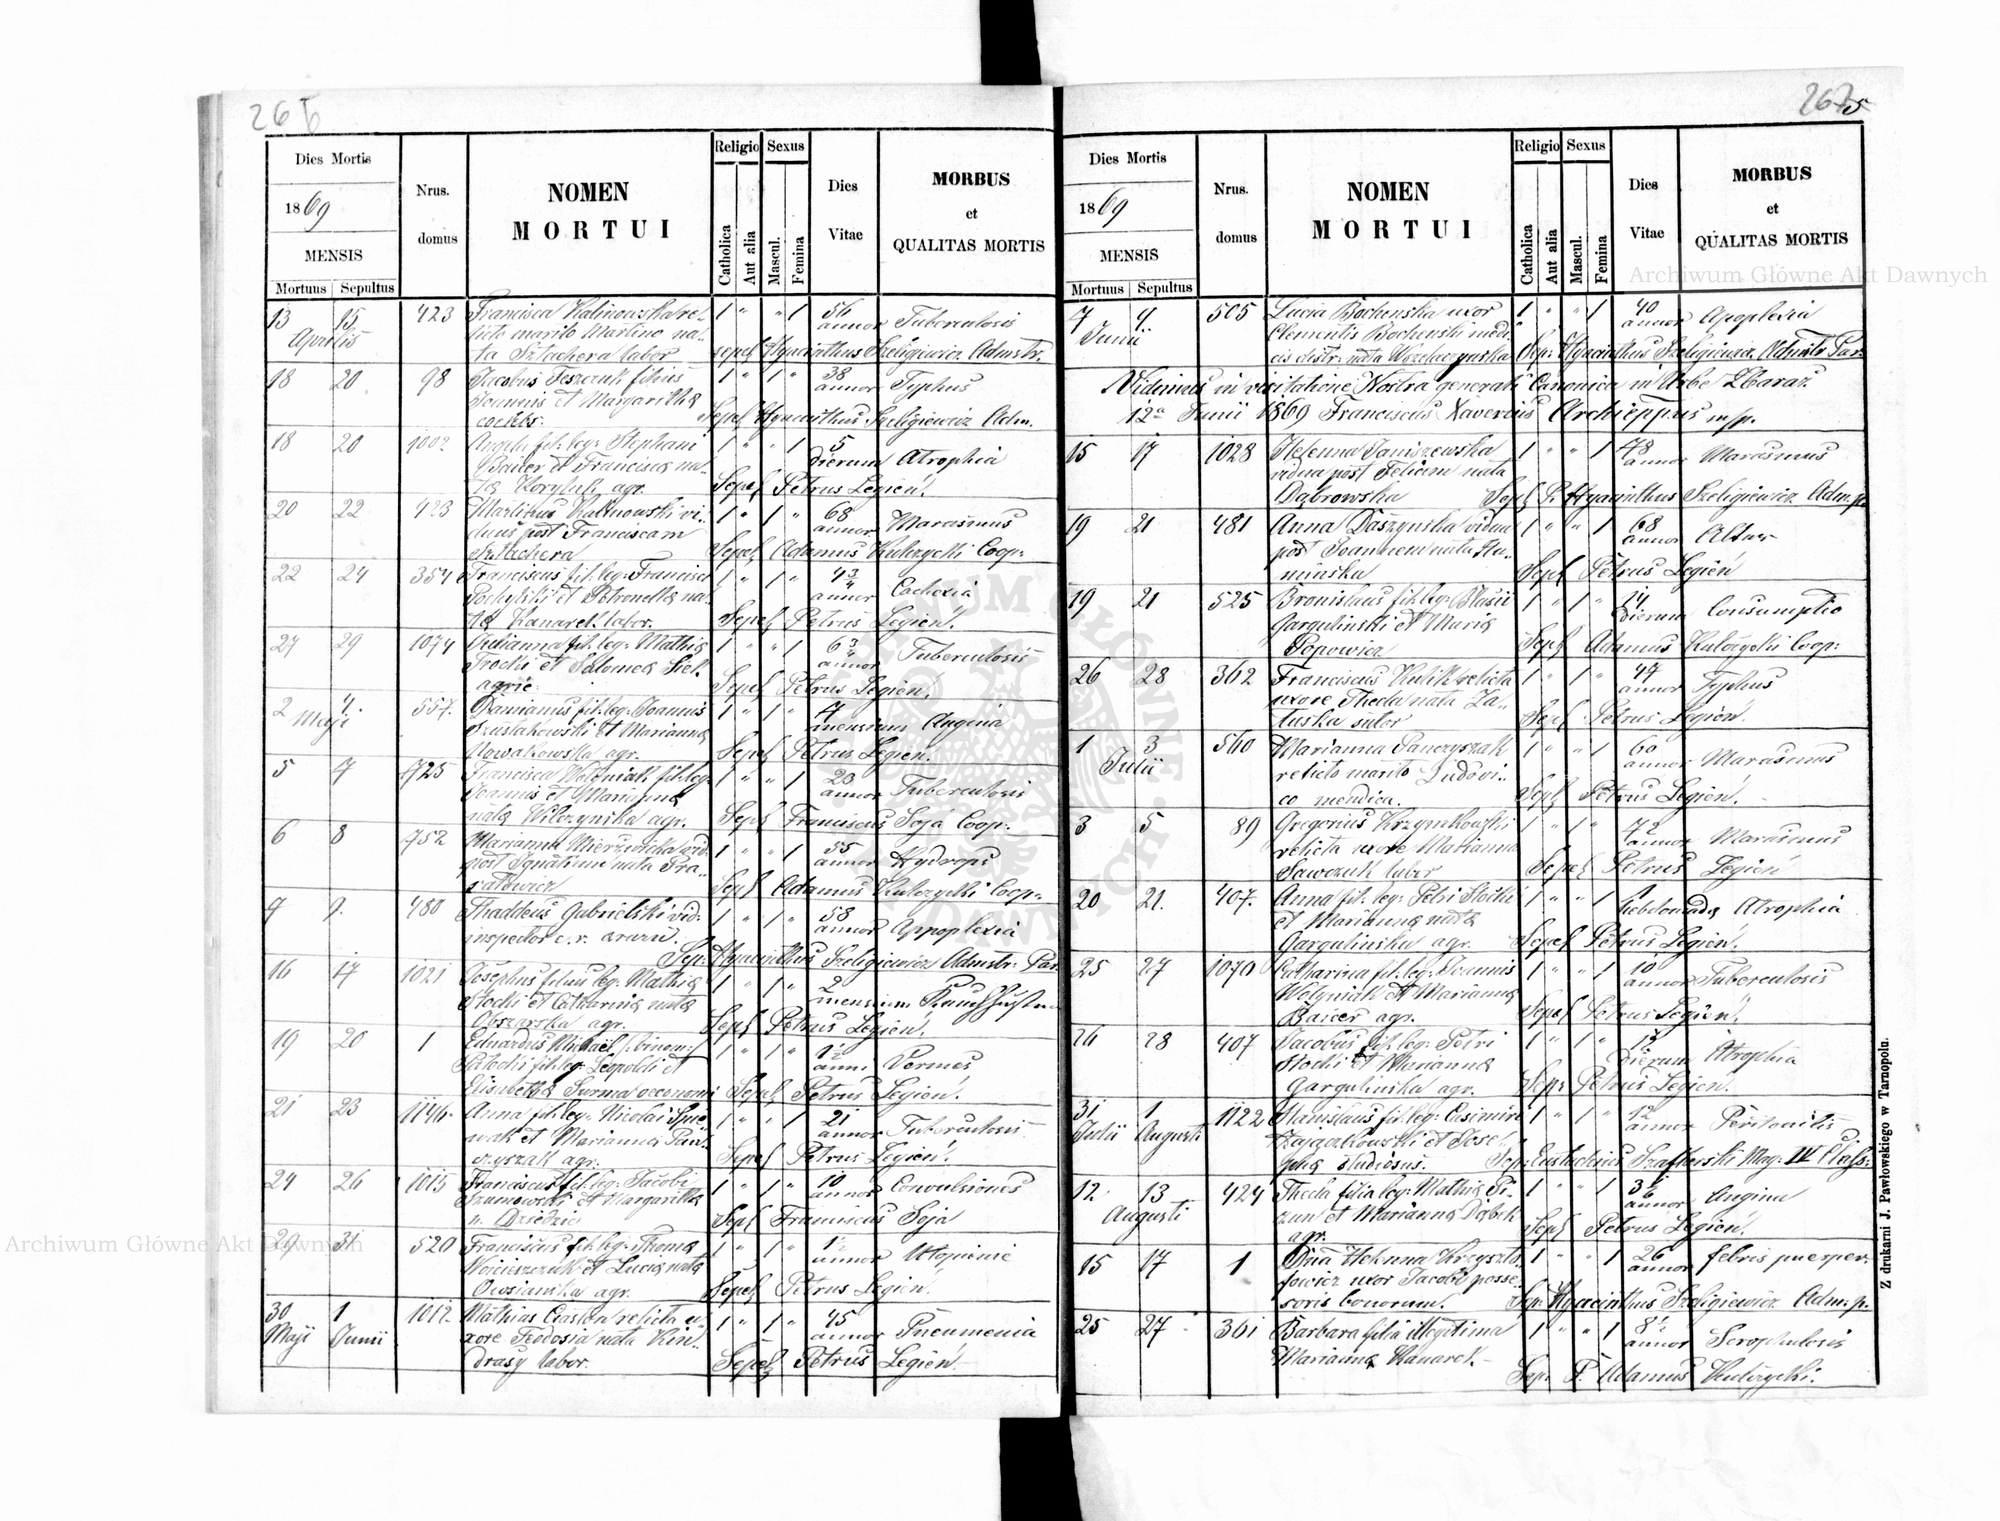 266
Dies Mortis
1869
MENSIS
Mortuus Sepultus
Nrus. domus
NOMEN MORTUI
Religio
Catholica
Aut alia
Sexus
Mascul.
Femina
Dies Vitae
MORBUS et QUALITAS MORTIS
13 15 423 Francisca Kalinowska re- 1 " " 1 56
Aprilis licto marito Martino na- annor Tuberculosis
ta Sztachera labor sepel Hyacinthus Szeligiewicz Admstr.
18 20 98 Jacobus Teszczuk filius 1 " 1 " 38
Joannis et Margaritha annor Typhus
coelebs. Sepel Hyacinthus Szeligiewicz Adm.
18 20 1002 Angela fil: leg: Stephani 1 " " 1 5
Bailer et Francisca na- dierum Atrophia
ta Koryluk agr. Sepel Petrus Legień.
20 22 423 Martinus Kalinowski vi- 1 " 1 " 68
duus post Franciscam annor. Marasmus
Sztachera Sepel Adamus Kulczycki Coop:
22 24 354 Franciscus fil. leg: Francisci 1 " 1 " 4 3/4
Pochylski et Petronella na- annor Cachexia
ta Kanarek labor. Sepel Petrus Legień.
27 29 1074 Julianna fil. leg: Mathia 1 " " 1 6 3/4
Trocki et Salomea annor Tuberculosis
agric. Sepel Petrus Legień.
2 4. 557. Damianus fil. leg. Joannis 1 " 1 " 7
Maji Szustakowski et Marianna mensium Angina
Nowakowska agr. Sepel Petrus Legień.
5 7 725 Francisca Wołoniak fil. leg. 1 " " 1 23
Joannis et Marianna annor Tuberculosis
nata Wilczyńska agr. Sepel Franciscus Soja Coop:
6 8 752 Marianna Mierzwicka vid. 1 " " 1 55
post Ignatium nata annor Hydrops
Sepel Adamus Kulczycki Coop:
7 9. 480 Thaddeus Gabrielski vid: 1 " 1 " 58
inspector c. r. annor Appoplexia
Sep: Hyacinthus Szeligiewicz Admstr: Par.
16 17 1021 Josephus filius leg. Mathia 1 " 1 " 2
Stocki et Catharina nata mensium
Obszarska agr. Sepel Petrus Legień.
19 20 1 Eduardus Michael /: binom:/ 1 " 1 " 1 1/2
Potocki fil: leg: Leopoldi et anni Vermes
Elisabetha Surma oeconomi Sepel Petrus Legień.
21 23 1146. Anna fil: leg: Nicolai Śpie- 1 " " 1 21
wak et Marianna Pań- annor Tuberculosis
czyszak agr. Sepel Petrus Legień.
24 26 1015 Franciscus fil. leg: Jacobi 1 " 1 " 10
Szumowski et Margaritha annor Convulsiones
n. Dziedzic Sepel Franciscus Soja
29 31 520 Franciscus fil. leg: Thoma 1 " 1 " 1 1/2
Wojcieszczuk et Lucia nata annor
Owsianska agr. Sepel Petrus Legień.
30 1 1012 Mathias Ciastoń relicta u- 1 " 1 " 45
Maji Junii xore Teodosia nata annor Pneumonia
labor. Sepel Petrus Legień.
267 5
Dies Mortis
1869
MENSIS
Mortuus Sepultus
Nrus. domus
NOMEN MORTUI
Religio
Catholica
Aut alia
Sexus
Mascul.
Femina
Dies Vitae
MORBUS et QUALITAS MORTIS
7 9 505 Lucia Bochenska uxor 1 " " 1 40
Junii Clementis Bochenski medi- annor Apoplexia
cis distr: nata Sep: Hyacinthus Szeligiewicz Admstr Par.
Vidimus in visitatione Nostra generali Canonica in Urbe Zbaraż
12a Junii 1869 Franciscus Xaverius Archieppus m/p.
15 17 1028 Helenna Janiszewska 1 " " 1 78
vidua post Felicem nata annor Marasmus
Dąbrowska Sepel P. Hyacinthus Szeligiewicz Adm. p.
19 21 481 Anna Daszynska vidua 1 " " 1 68
post Joannem nata Hu- annor
minska Sepel Petrus Legień
19 21 525 Bronislaus fil. leg: Blasii 1 " 1 " 14
Gargulinski et Maria dierum Consumptio
Popowicz Sepel Adamus Kulczycki Coop:
26 28 362 Franciscus Kulik relicta 1 " 1 " 47
uxore Thecla nata Za- annor Typhus
łuska sutor Sepel Petrus Legień.
1 3 560 Marianna Panczyszak 1 " " 1 60
Julii relicto marito Ludovi- annor Marasmus
co mendica. Sepel Petrus Legień.
3 5 89 Gregorius Krzymkowski 1 " 1 " 72
relicta uxore Marianna annor Marasmus
Sawczuk labor Sepel Petrus Legień
20 21. 407. Anna fil. leg: Petri Stocki 1 " " 1
et Marianna nata hebdomada Atrophia
Gargulinska agr. Sepel Petrus Legień.
25 27 1070 Catharina fil. leg: Joannis 1 " " 1 10
Wołyniak et Marianna annor Tuberculosis
Baicer agr. Sepel Petrus Legień.
26 28 407 Jacobus fil. leg: Petri 1 " 1 "
Stocki et Marianna dierum Atrophia
Gargulinska agr. Sep: Petrus Legień.
31 1 1122 Stanislaus fil. leg: Casimiri 1 " 1 " 12
Julii Augusti Zajączkowski et Jose- annor Peritonitis
pha studiosus. Sep: Eustachius Szafterski Mag: IV Class:
12 13 424 Thecla filia leg: Mathia Pi- 1 " " 1 3 1/2
Augusti zun et Marianna Dąbek annor Angina
agr. Sepel Petrus Legień.
15 17 1 Dna Helenna Krzyszto- 1 " " 1 26
fowicz uxor Jacobi posse- annor febris puerper.
soris bonorum. Sep: Hyacinthus Szeligiewicz Adm. p.
25 27 361 Barbara filia illegitima 1 " " 1 8 1/2
Marianna Kanarek annor Scrophulosis
Sep. P. Adamus Kulczycki.
Z drukarni J. Pawłowskiego w Tarnopolu.
Archiwum Główne Akt Dawnych
Archiwum Główne Akt Dawnych
ARCHIWUM GŁÓWNE AKT DAWNYCH